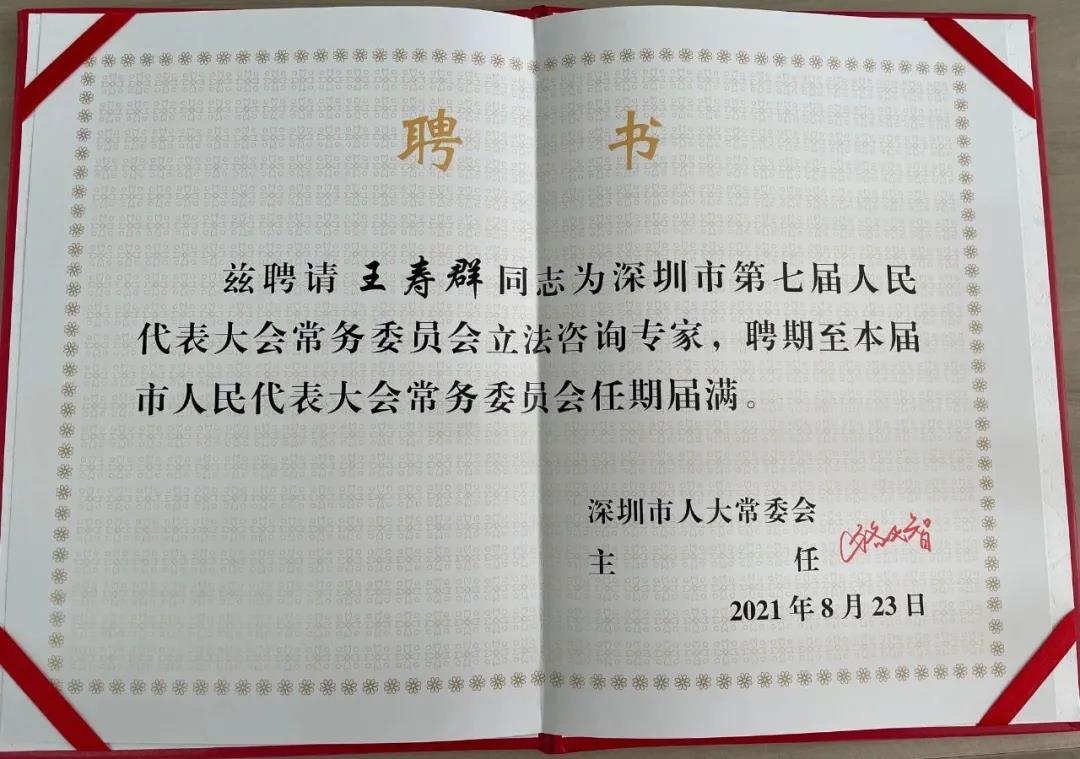 聘书
兹聘请 王寿群 同志为深圳市第七届人民
代表大会常务委员会立法咨询专家，聘期至本届
市人民代表大会常务委员会任期届满。
深圳市人大常委会
主任
2021年8月23日